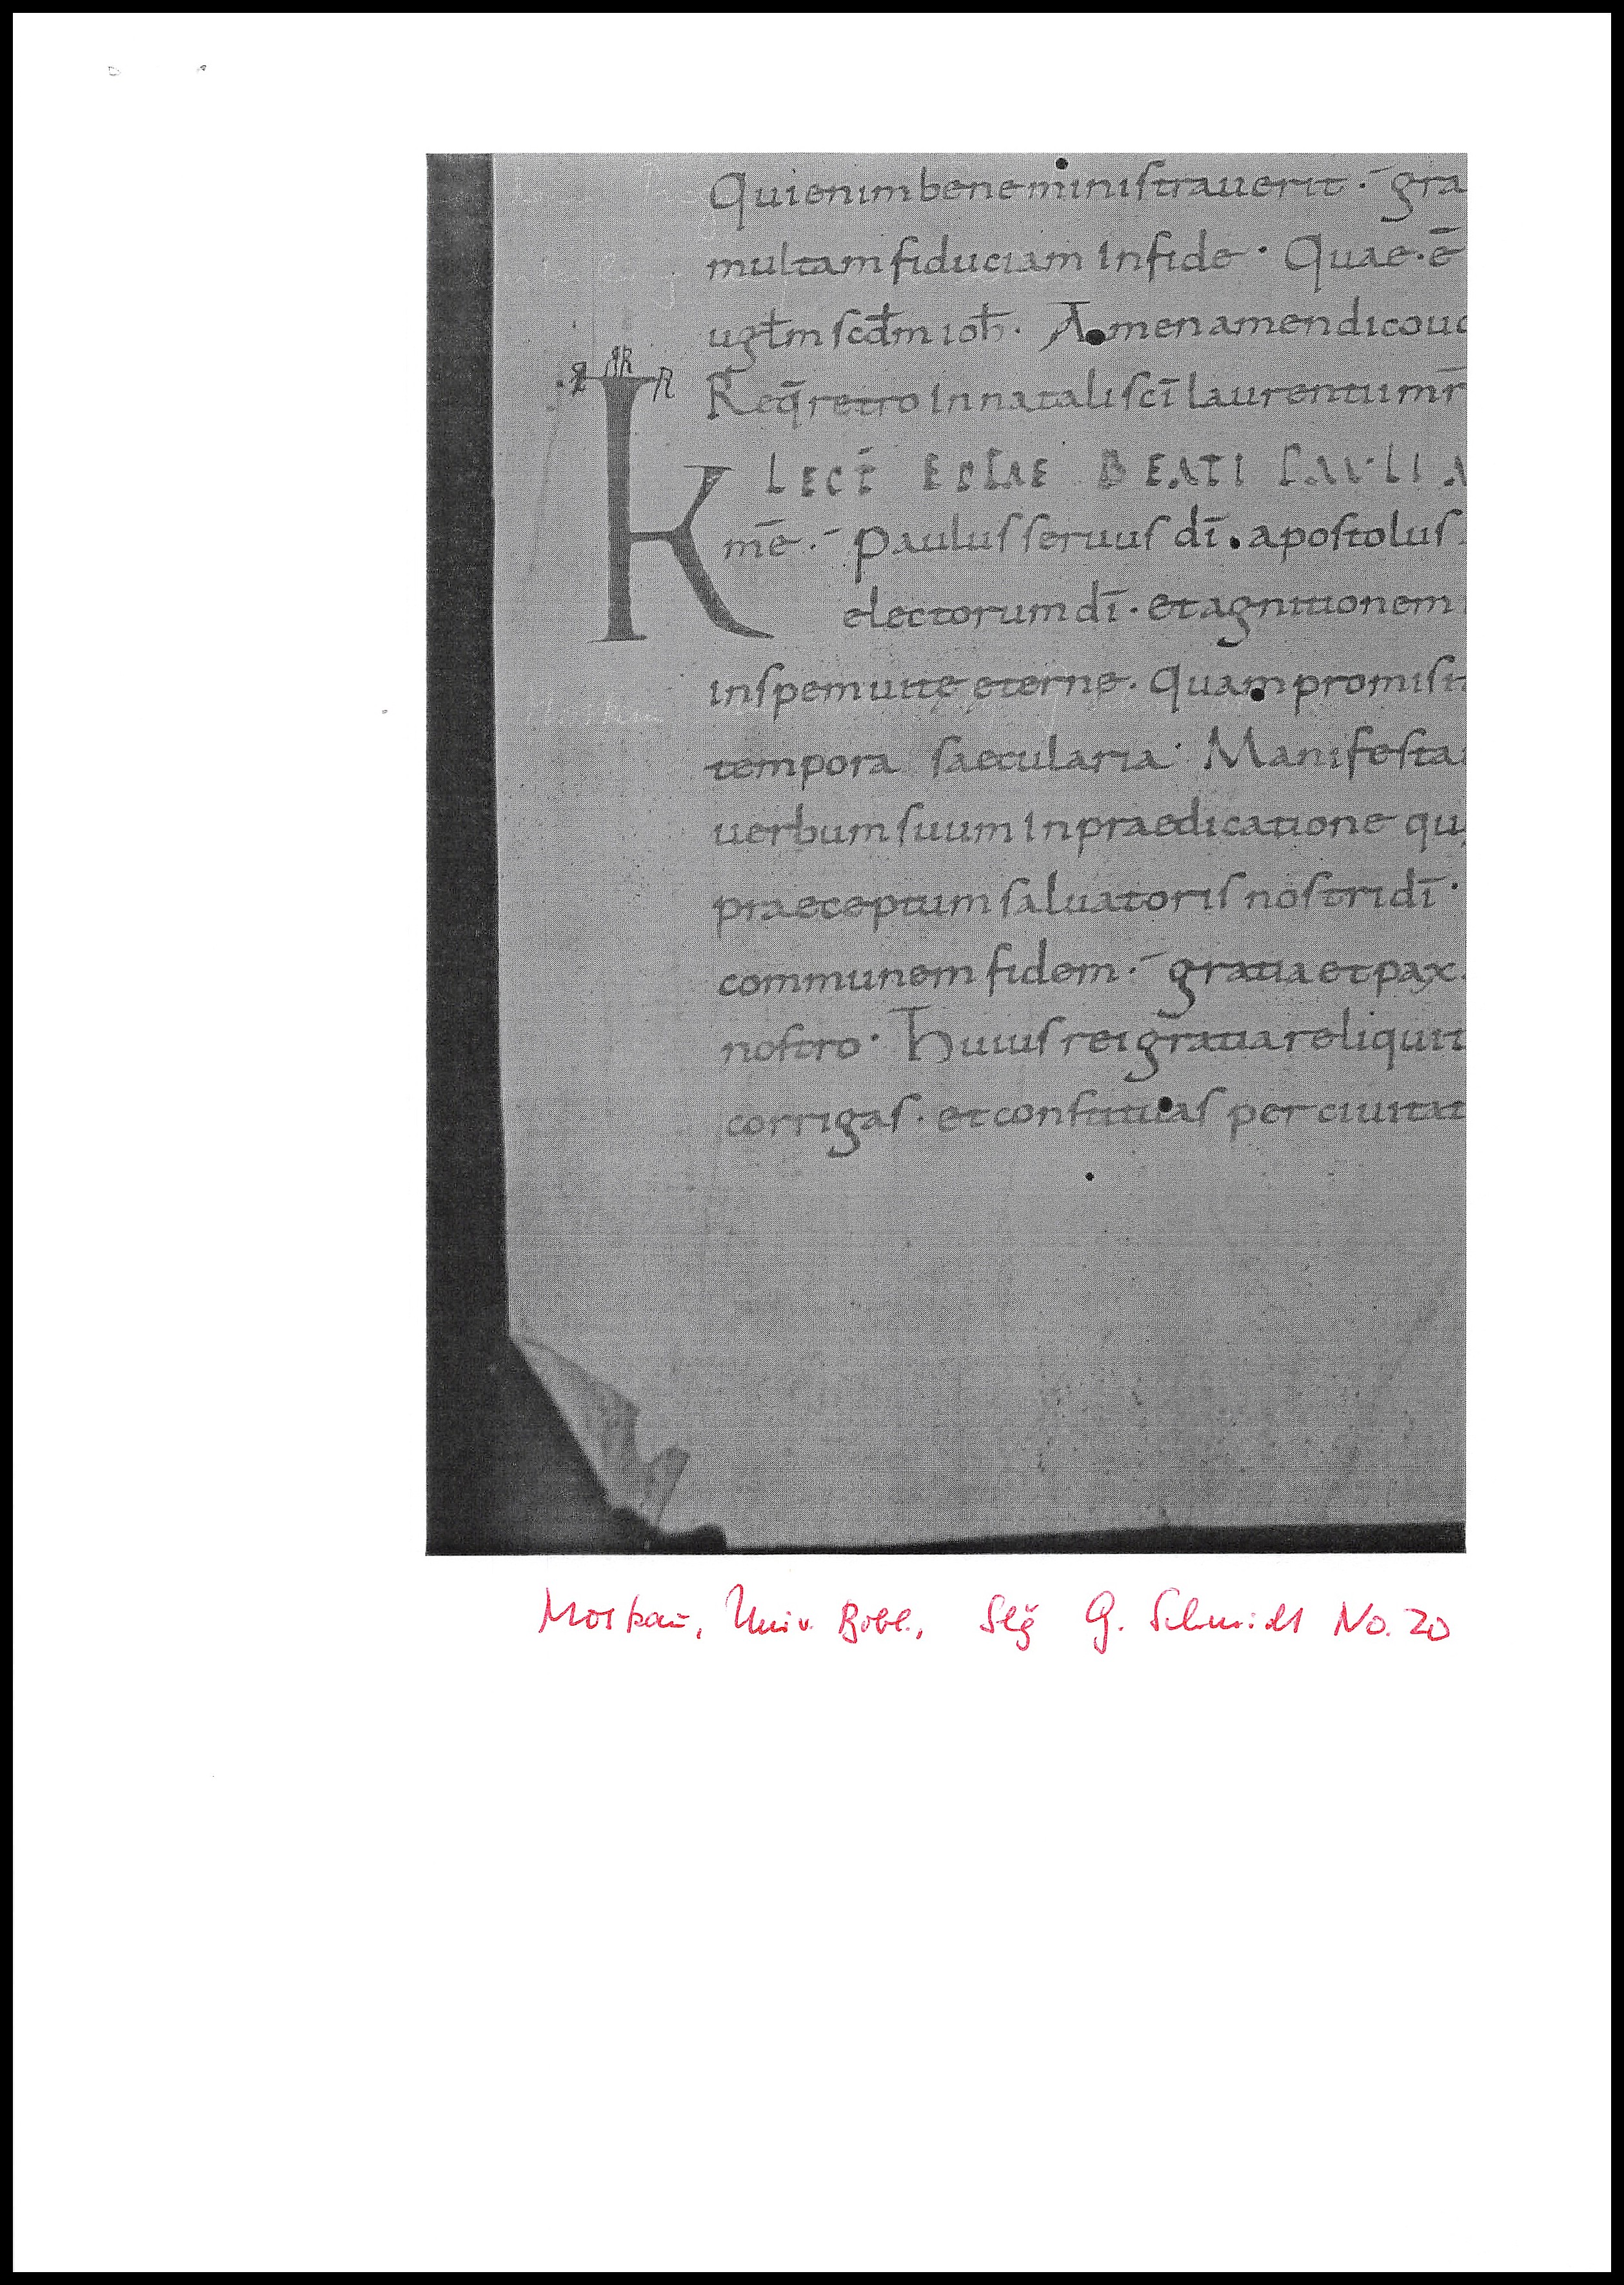 Qui enim bene ministrauerit. gra
multam fiduciam in fide. Quae. ē
ugłm scdm ioħ. Amen amen dico uo
Req̄ retro in natali sc̄i laurentii mr̄
K LECT̄ EPLAE BEATI PAULI A
carissime
mē. paulus seruus dī. apostolus
electorum dī. et agnitionem
in spem uite eterne. Quam promisit
tempora saecularia. Manifesta
uerbum suum in praedicatione qu
praeceptum saluatoris nostri dī.
communem fidem. gratia et pax
nostro. Huius rei gratia reliqui t
corrigas. et constituas per ciuitat
Moskau, Univ. Bibl., Slg G. Schmidt No. 20